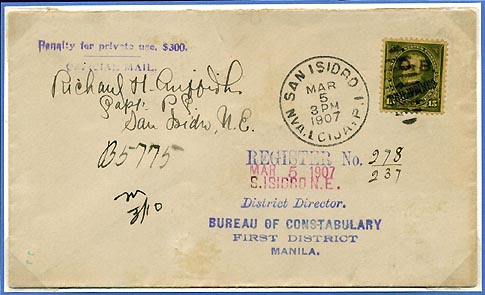 Penalty for private use, $300.
OFFICIAL MAIL.
Richard H. Griffith
Capt. P.C.
San Isidro, N.E.
B5775
SAN ISIDRO
MAR
5
3PM
1907
NVA. ECIJA, P.I.
O.B.
15 15
REGISTER No. 278
237
MAR 5 1907
S.ISIDRO N.E.
District Director.
BUREAU OF CONSTABULARY
FIRST DISTRICT
MANILA.